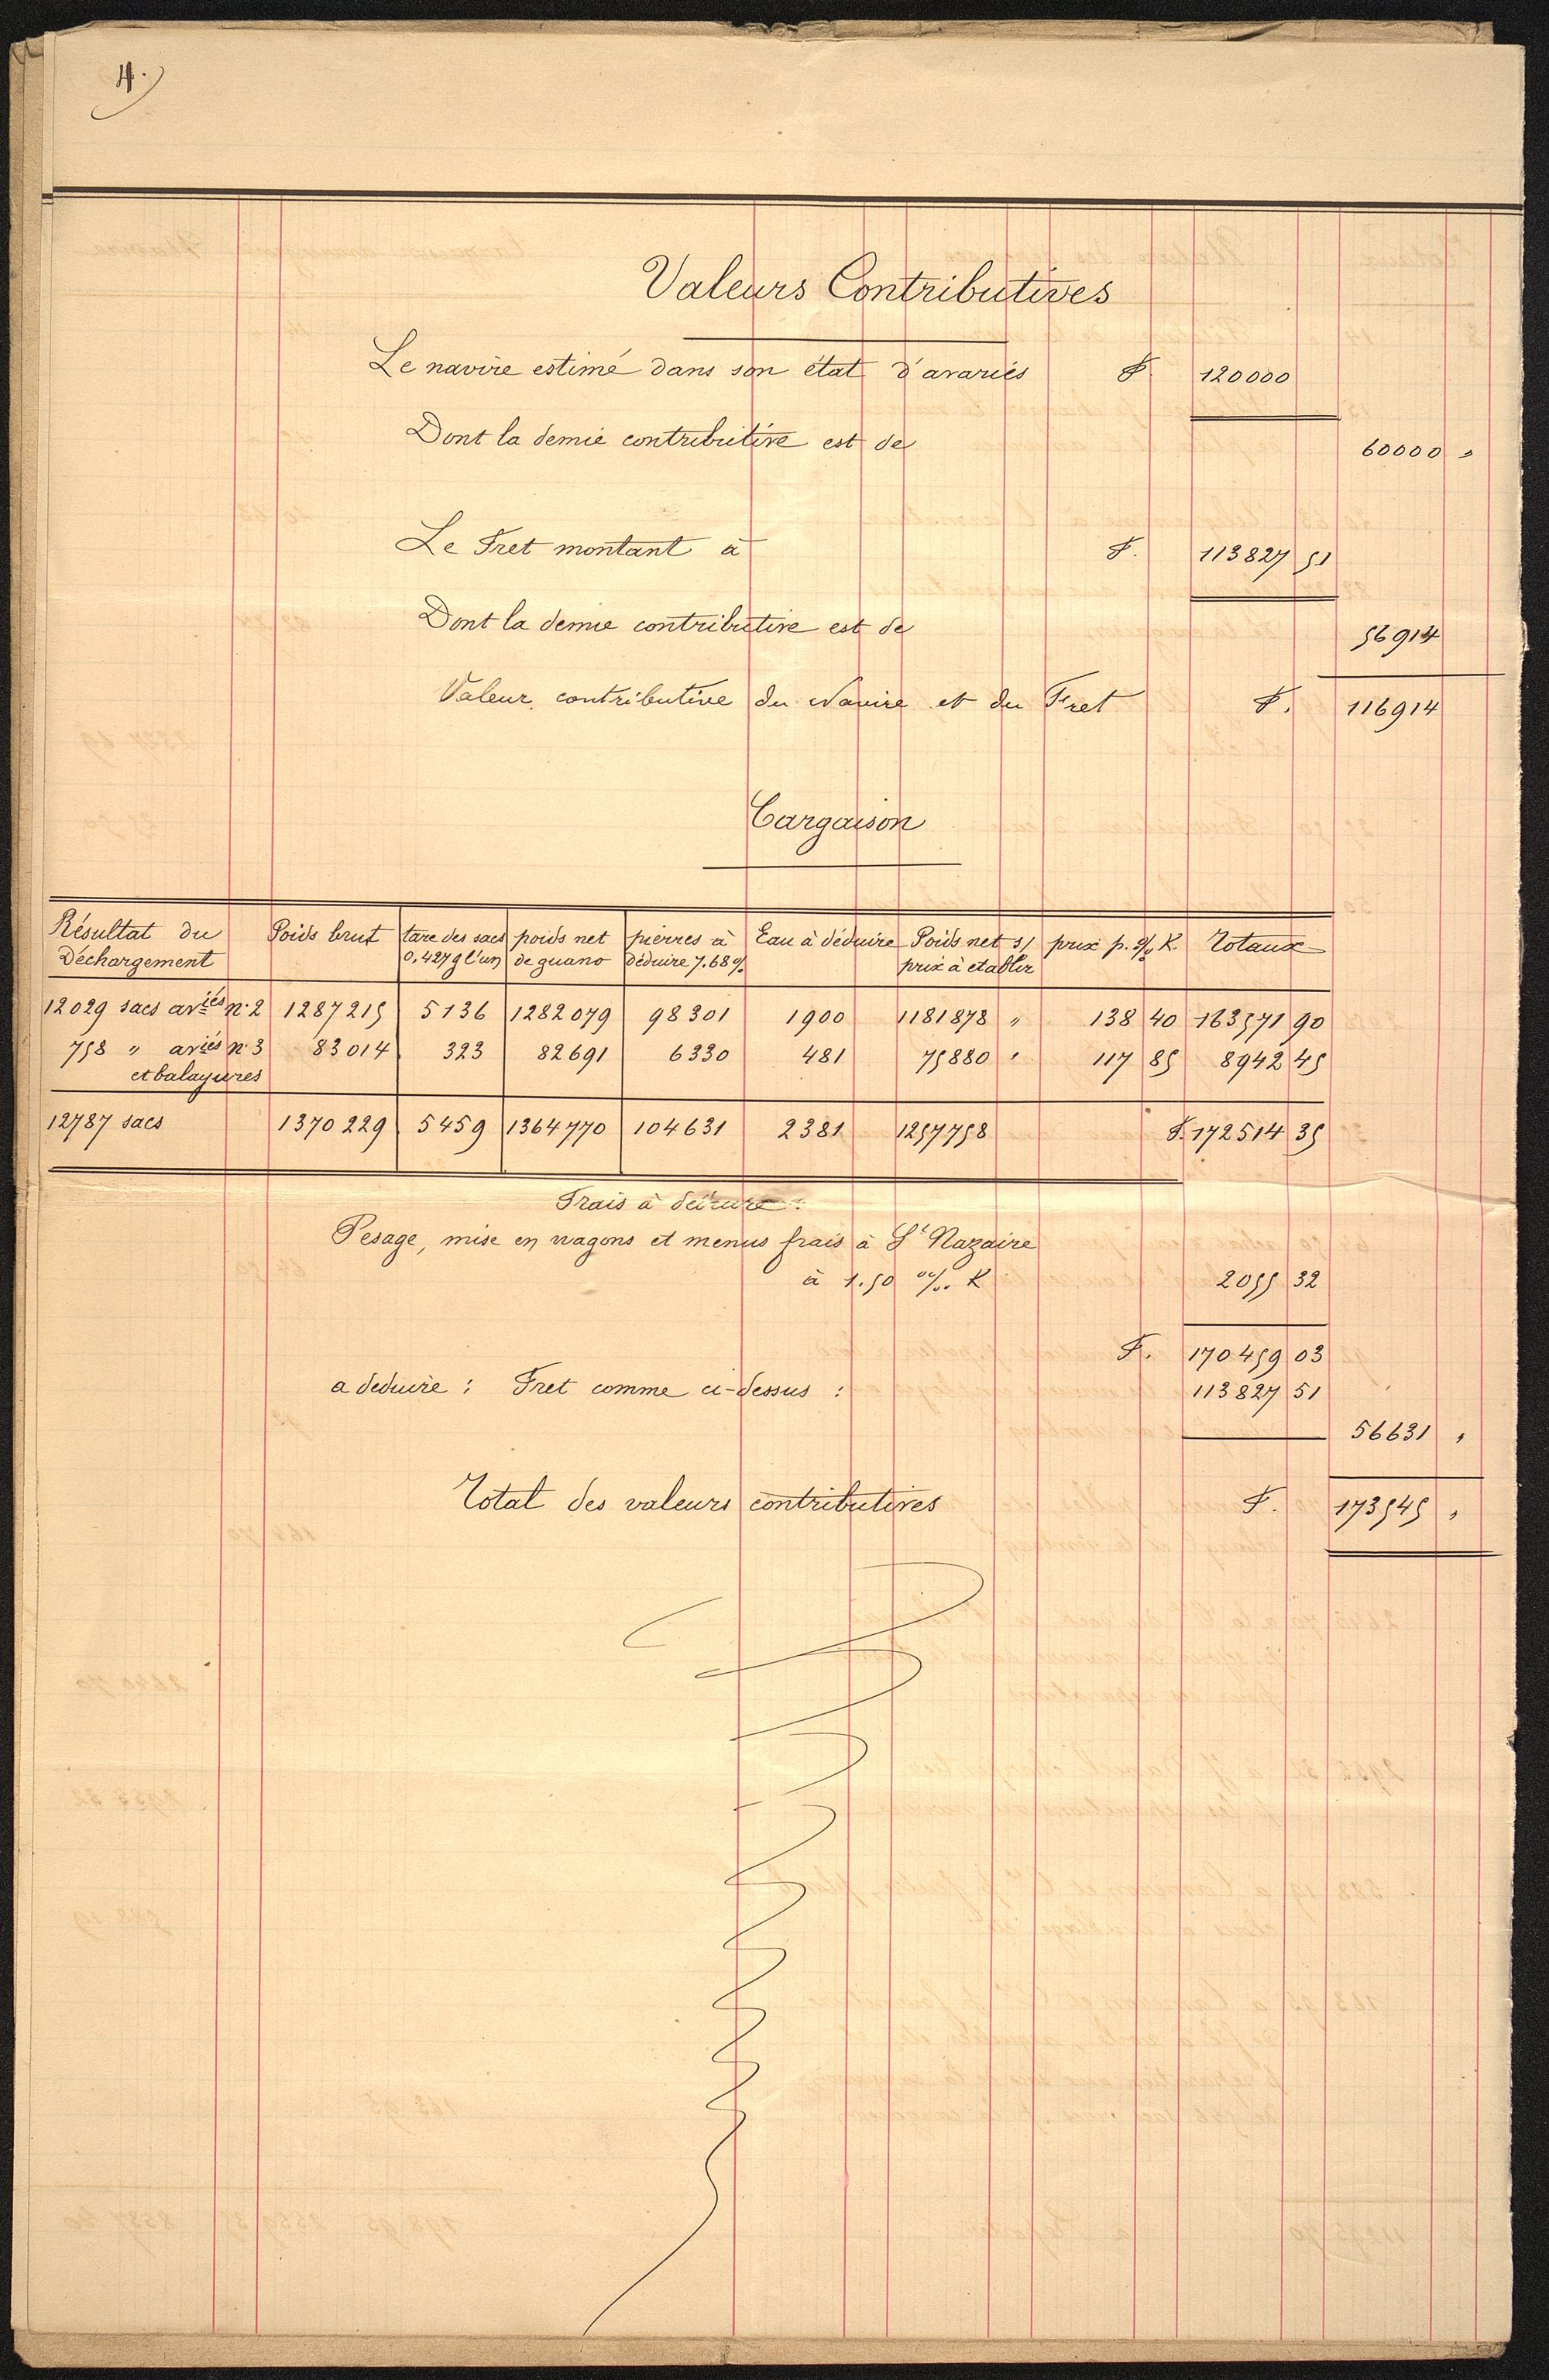 4.
Valeurs Contributives
Le navire estimé dans son état d'avariés F 120000
Dont la demie contributive est de 60000 "
Le Fret montant à F. 113827 51
Dont la demie contributive est de 56914
Valeur contributive du Navire et du Fret F. 116914
Cargaison
Résultat du Déchargement Poids brut tare des sacs 0,427g l'un poids net de guano pierres à déduire 7.68 % Eau à déduire Poids net s/ prix à etablir prix p. % K. Totaux
12029 sacs avariés n.2 1287215 5136 1282079 98301 1900 1181878 " 138 40 163571 90
758 " avariés n.3 83014 323 82691 6330 481 75880 " 117 85 8942 45
et balayures
12787 sacs 1370229 5459 1364770 104631 2381 1257758 F. 172514 35
Frais à déduire :
Pesage, mise en wagons et menus frais à St Nazaire
à 1.50 ‰ K 2055 32
F. 170459 03
a deduire : Fret comme ci-dessus : 113827 51
56631 "
Total des valeurs contributives F. 173545 "